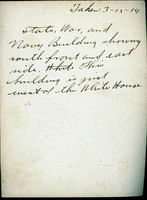 Taken 3-15-14
State, War, and
Navy Building showing
south front and east
side. White This
building is just
west of the White House